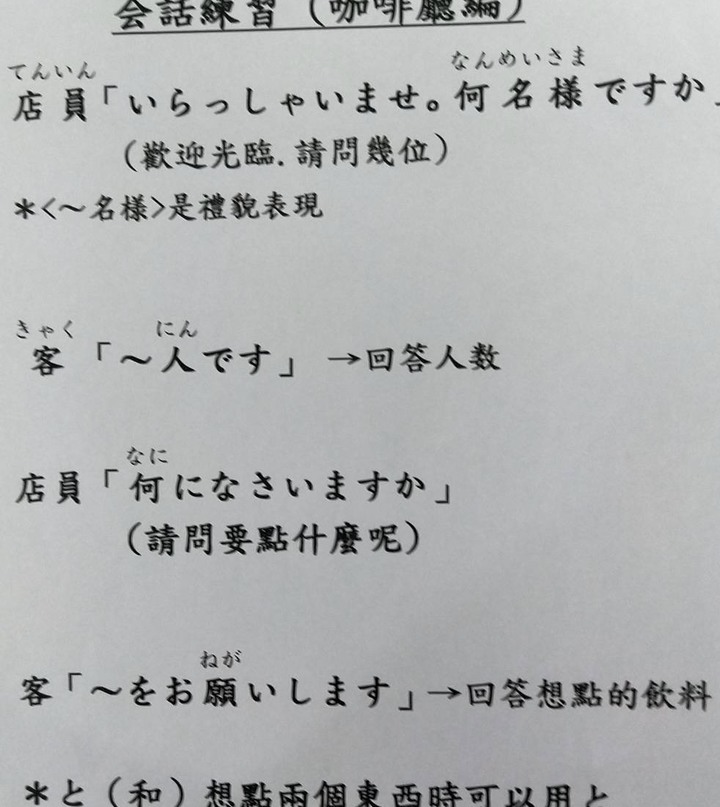 会話練習（咖啡廳編）
てんいん なんめいさま
店員「いらっしゃいませ。何名様ですか」
（歡迎光臨.請問幾位）
＊<～名様>是禮貌表現
きゃく にん
客「～人です」→回答人数
なに
店員「何になさいますか」
（請問要點什麼呢）
ねが
客「～をお願いします」→回答想點的飲料
＊と（和）想點兩個東西時可以用と